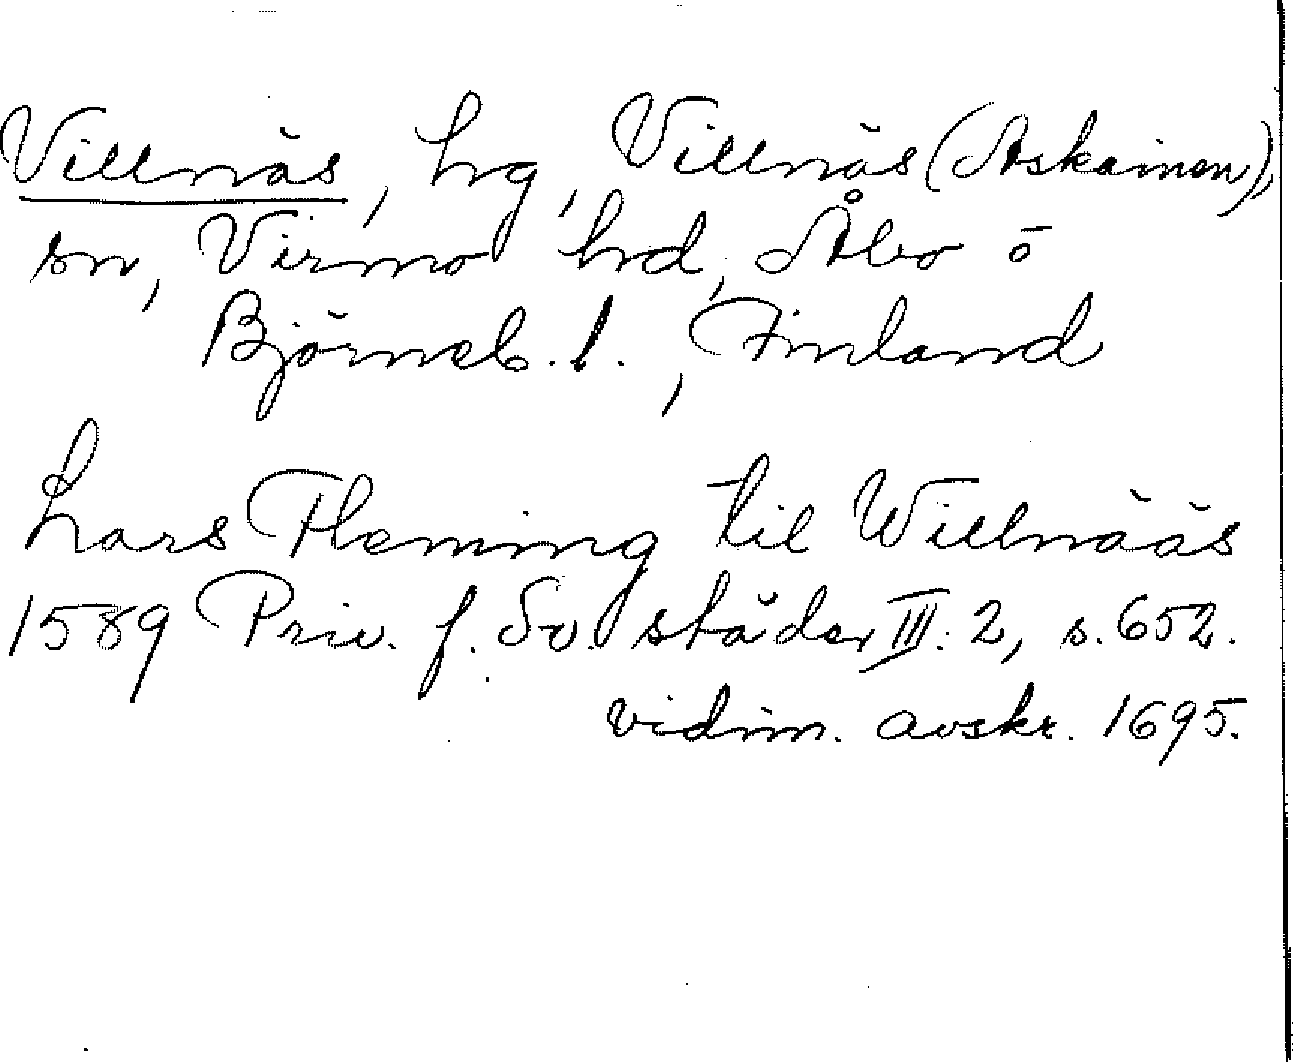 Villnäs, hg, Villnäs (Askainen),
sn, Virmo hd, Åbo o
Björneb. l., Finland
Lars Fleming til Willnääs
1589 Priv. f. Sv. städer III: 2, s. 652.
vidim. avskr. 1695.